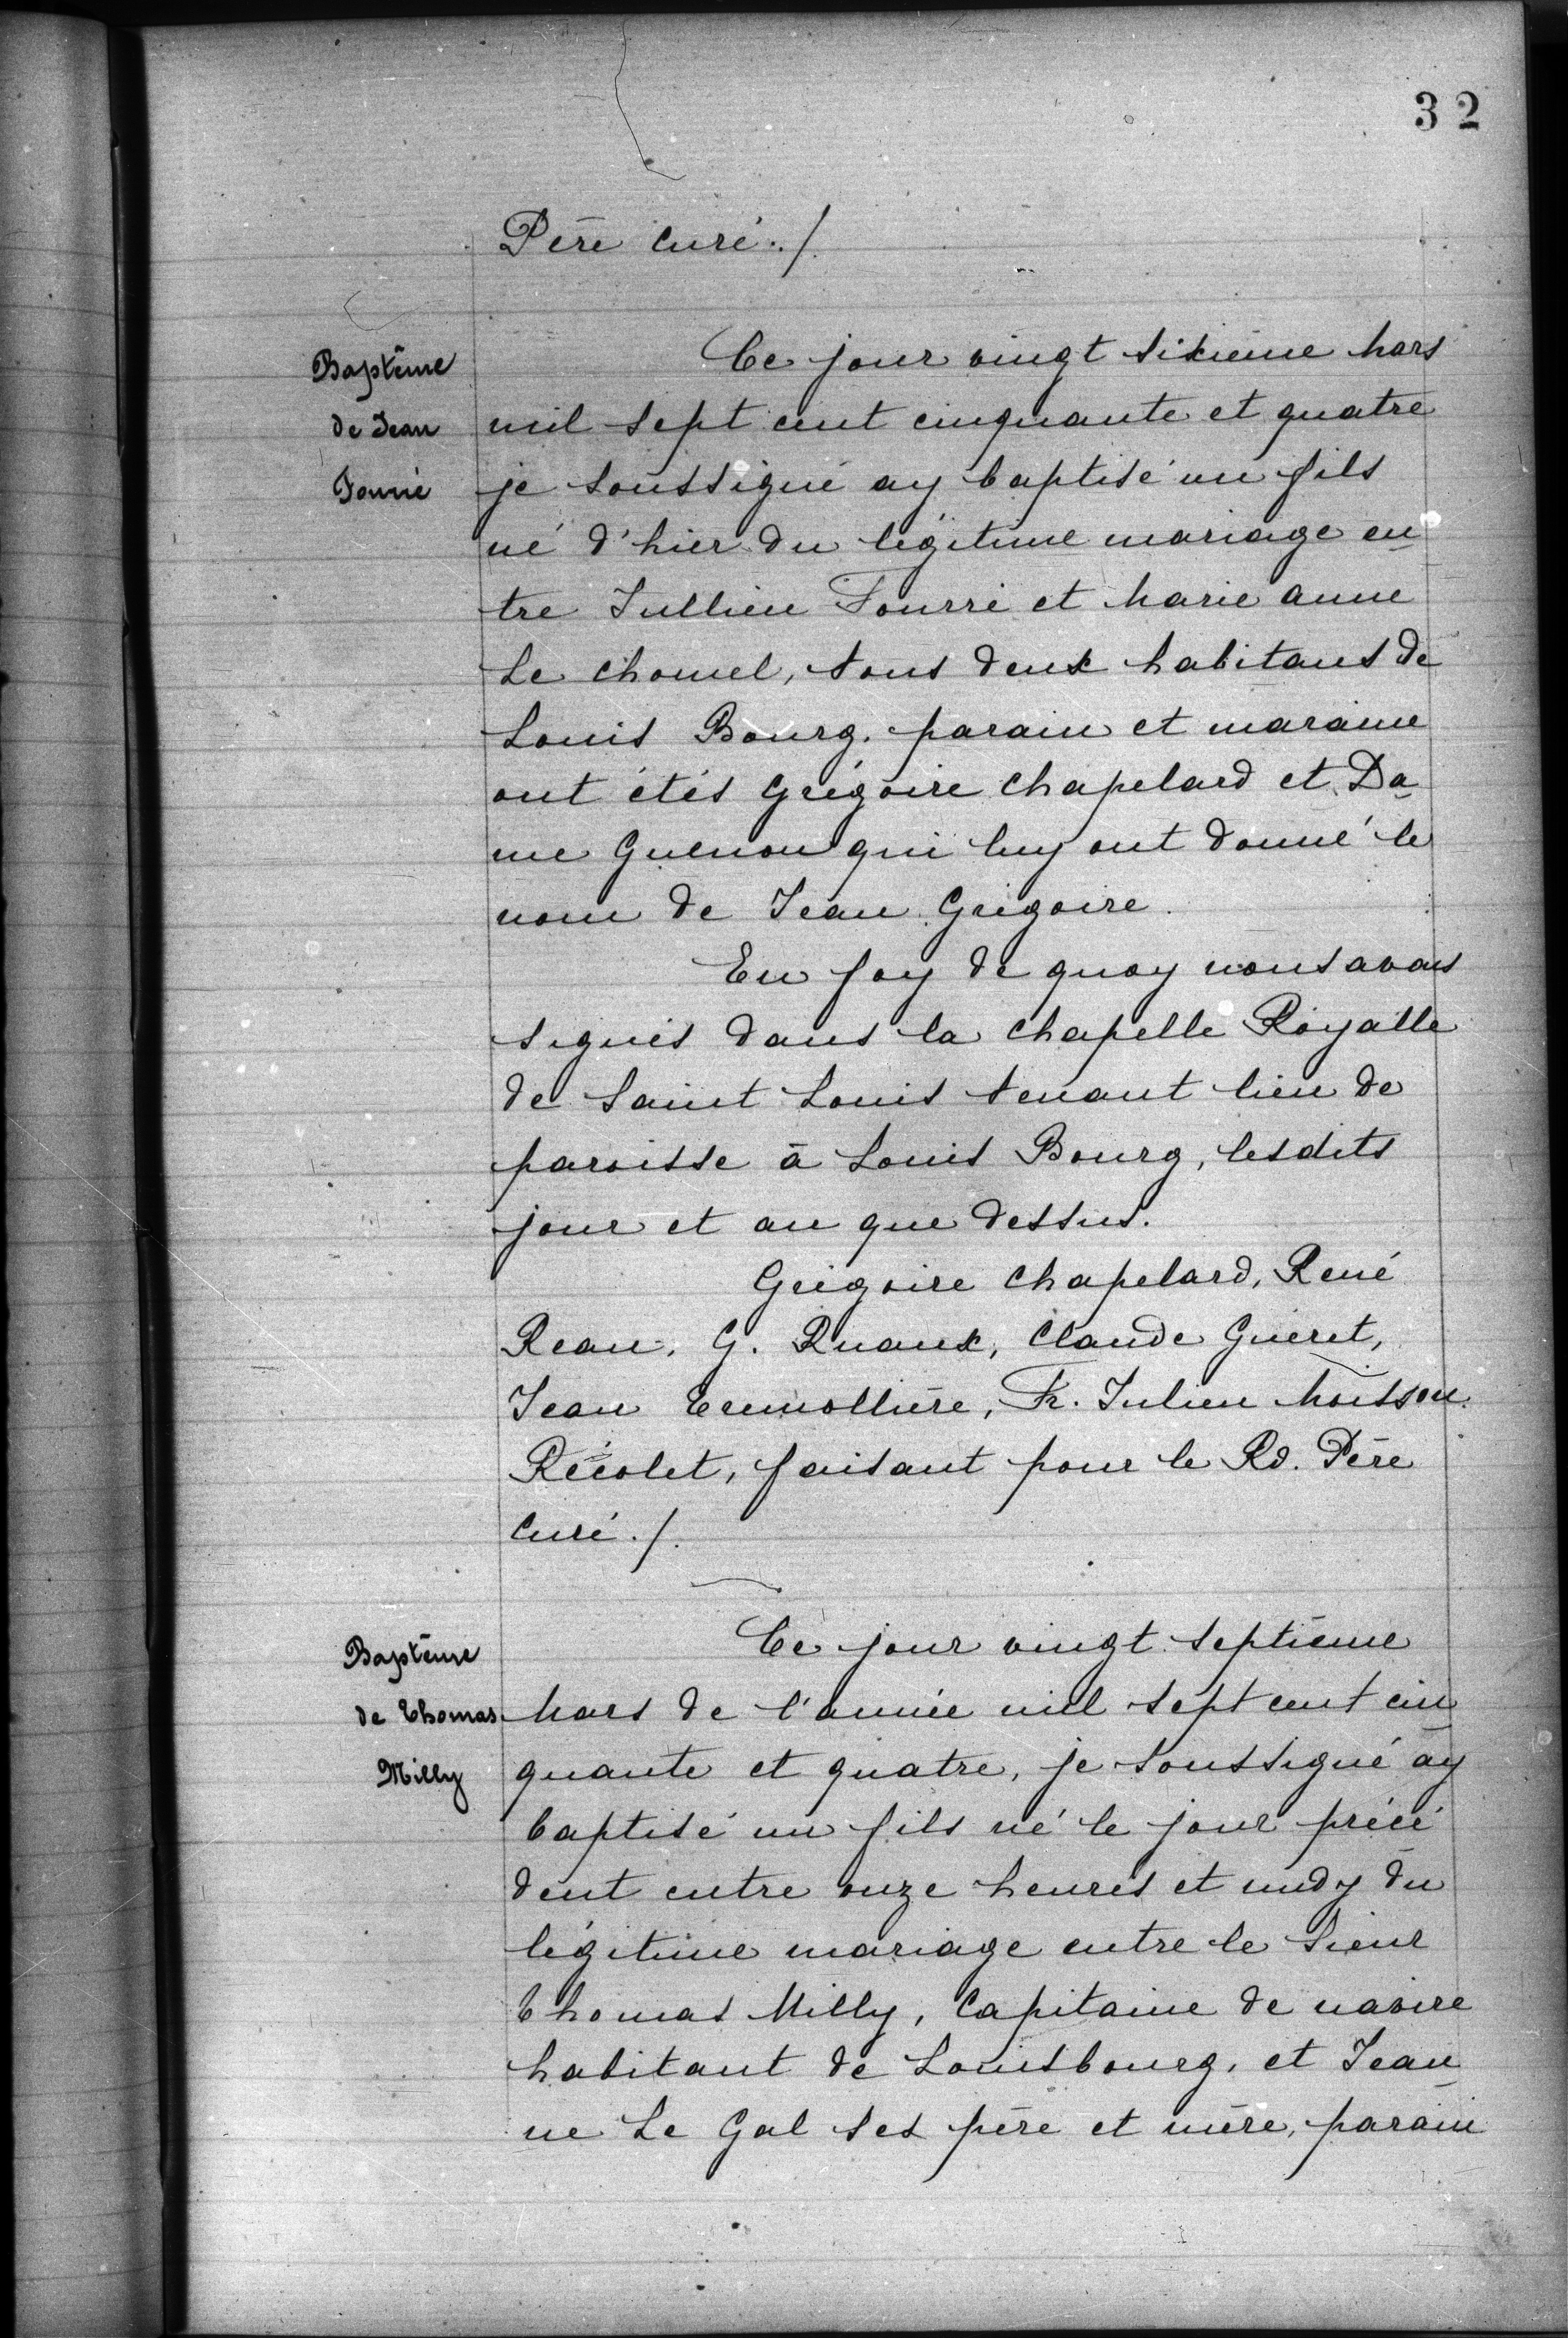 32
Père Curé ./.
Baptême
de Jean
Fourré
Ce jour vingt sixième Mars
mil sept cent cinquante et quatre
je soussigné ay baptisé un fils
né d'hier du légitime mariage en
tre Jullien Fourré et Marie Anne
Le Chomel, tous deux habitans de
Louis Bourg. parain et maraine
ont étés Grégoire Chapelard et Da
me Guenon qui luy ont donné le
nom de Jean Grégoire.
En foy de quoy nous avons
signés dans la Chapelle Royalle
de Saint Louis tenant lieu de
paroisse à Louis Bourg, lesdits
jour et an que dessus.
Grégoire Chapelard, René
Reau, G. Ruaux, Claude Gueret,
Jean Tremollière, Fr. Julien Moisson
Récolet, faisant pour le Rd. Père
Curé ./.
Baptême
de Thomas
Milly
Ce jour vingt septième
Mars de l'année mil sept cent cin
quante et quatre, je soussigné ay
baptisé un fils né le jour précé
dent entre onze heures et midy du
légitime mariage entre le Sieur
Thomas Milly, Capitaine de navire
habitant de Louisbourg, et Jean
ne Le Gal ses père et mère, parain